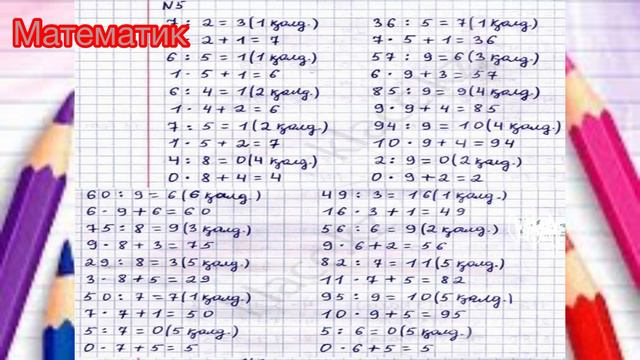 N5
Математик
7 : 2 = 3 (1 қалд.)
2 + 1 = 7
6 : 5 = 1 (1 қалд.)
1 · 5 + 1 = 6
6 : 4 = 1 (2 қалд.)
1 · 4 + 2 = 6
7 : 5 = 1 (2 қалд.)
1 · 5 + 2 = 7
4 : 8 = 0 (4 қалд.)
0 · 8 + 4 = 4
36 : 5 = 7 (1 қалд.)
7 · 5 + 1 = 36
57 : 9 = 6 (3 қалд.)
6 · 9 + 3 = 57
85 : 9 = 9 (4 қалд.)
9 · 9 + 4 = 85
94 : 9 = 10 (4 қалд.)
10 · 9 + 4 = 94
2 : 9 = 0 (2 қалд.)
0 · 9 + 2 = 2
60 : 9 = 6 (6 қалд.)
6 · 9 + 6 = 60
75 : 8 = 9 (3 қалд.)
9 · 8 + 3 = 75
29 : 8 = 3 (5 қалд.)
3 · 8 + 5 = 29
50 : 7 = 7 (1 қалд.)
7 · 7 + 1 = 50
5 : 7 = 0 (5 қалд.)
0 · 7 + 5 = 5
49 : 3 = 16 (1 қалд.)
16 · 3 + 1 = 49
56 : 6 = 9 (2 қалд.)
9 · 6 + 2 = 56
82 : 7 = 11 (5 қалд.)
11 · 7 + 5 = 82
95 : 9 = 10 (5 қалд.)
10 · 9 + 5 = 95
5 : 6 = 0 (5 қалд.)
0 · 6 + 5 = 5